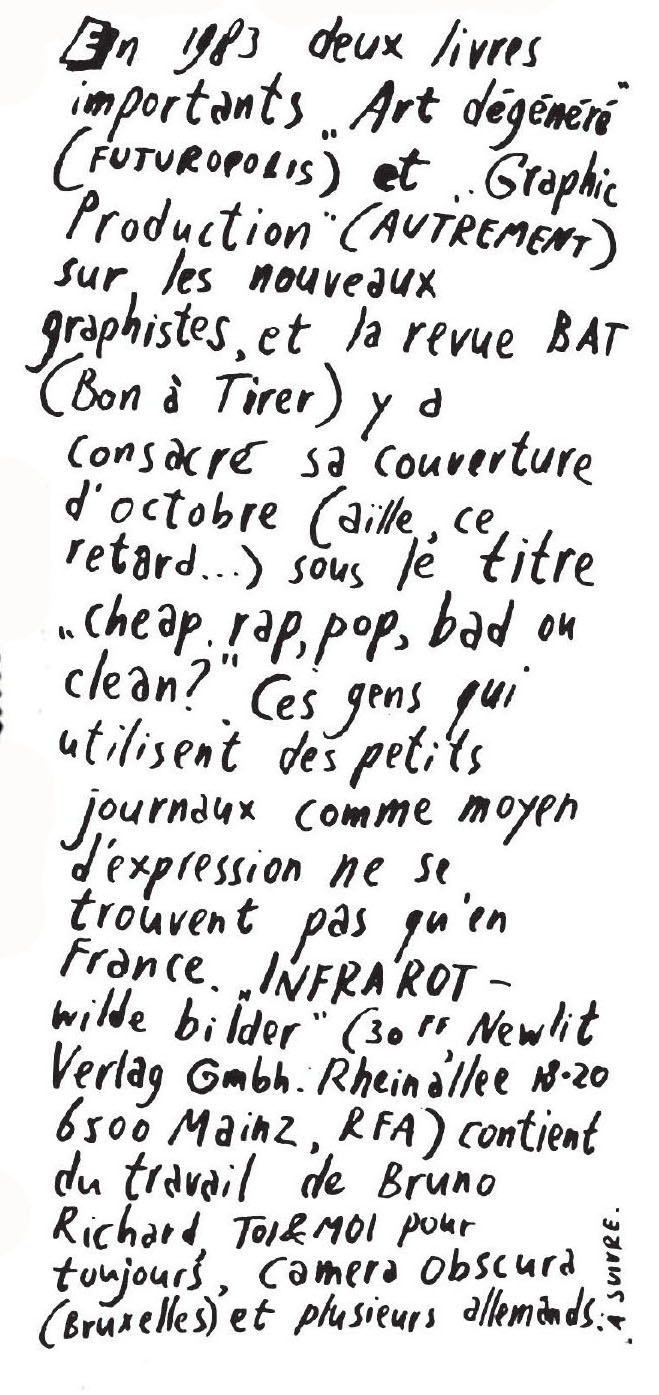 En 1983 deux livres
importants „Art dégénéré"
(FUTUROPOLIS) et „Graphic
Production" (AUTREMENT)
sur les nouveaux
graphistes, et la revue BAT
(Bon à Tirer) y a
consacré sa couverture
d'octobre (aïlle, ce
retard...) sous le titre
„cheap, rap, pop, bad ou
clean?" Ces gens qui
utilisent des petits
journaux comme moyen
d'expression ne se
trouvent pas qu'en
France. „INFRAROT –
wilde bilder" (30 FF Newlit
Verlag Gmbh. Rheinallee 18-20
6500 Mainz, RFA) contient
du travail de Bruno
Richard, TOI & MOI pour
toujours, Camera obscura
(Bruxelles) et plusieurs allemands.
A SUIVRE.